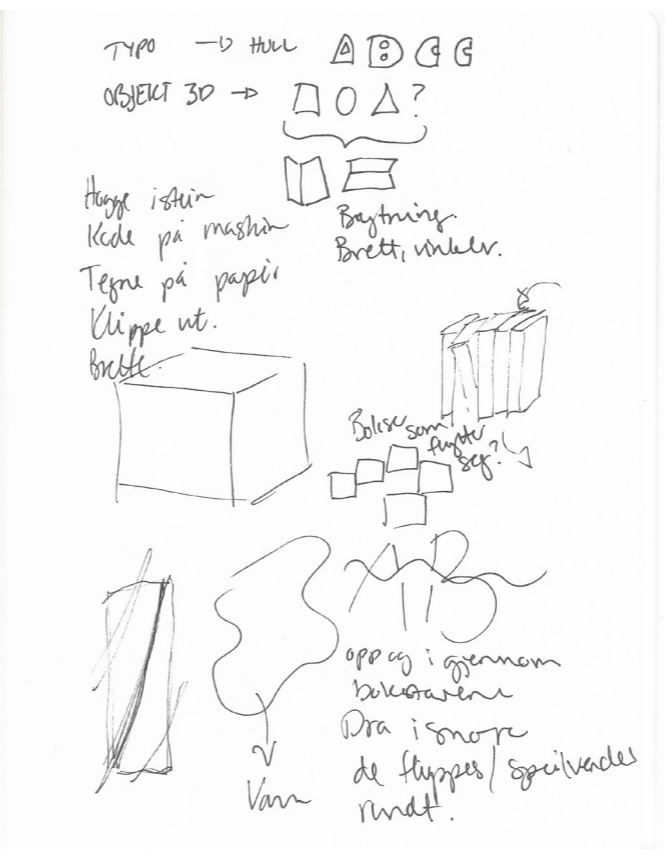 TYPO → HULL A B C C
OBJEKT 3D → ?
Hugge i stein
Kode på maskin
Tegne på papir
Klippe ut.
Brette.
Brytning.
Brett, vinkler.
Bokser som
flytter
seg?
AB
opp og i gjennom
bokstavene
Dra i snore
de flyppes/speilvendes
rundt.
Vann